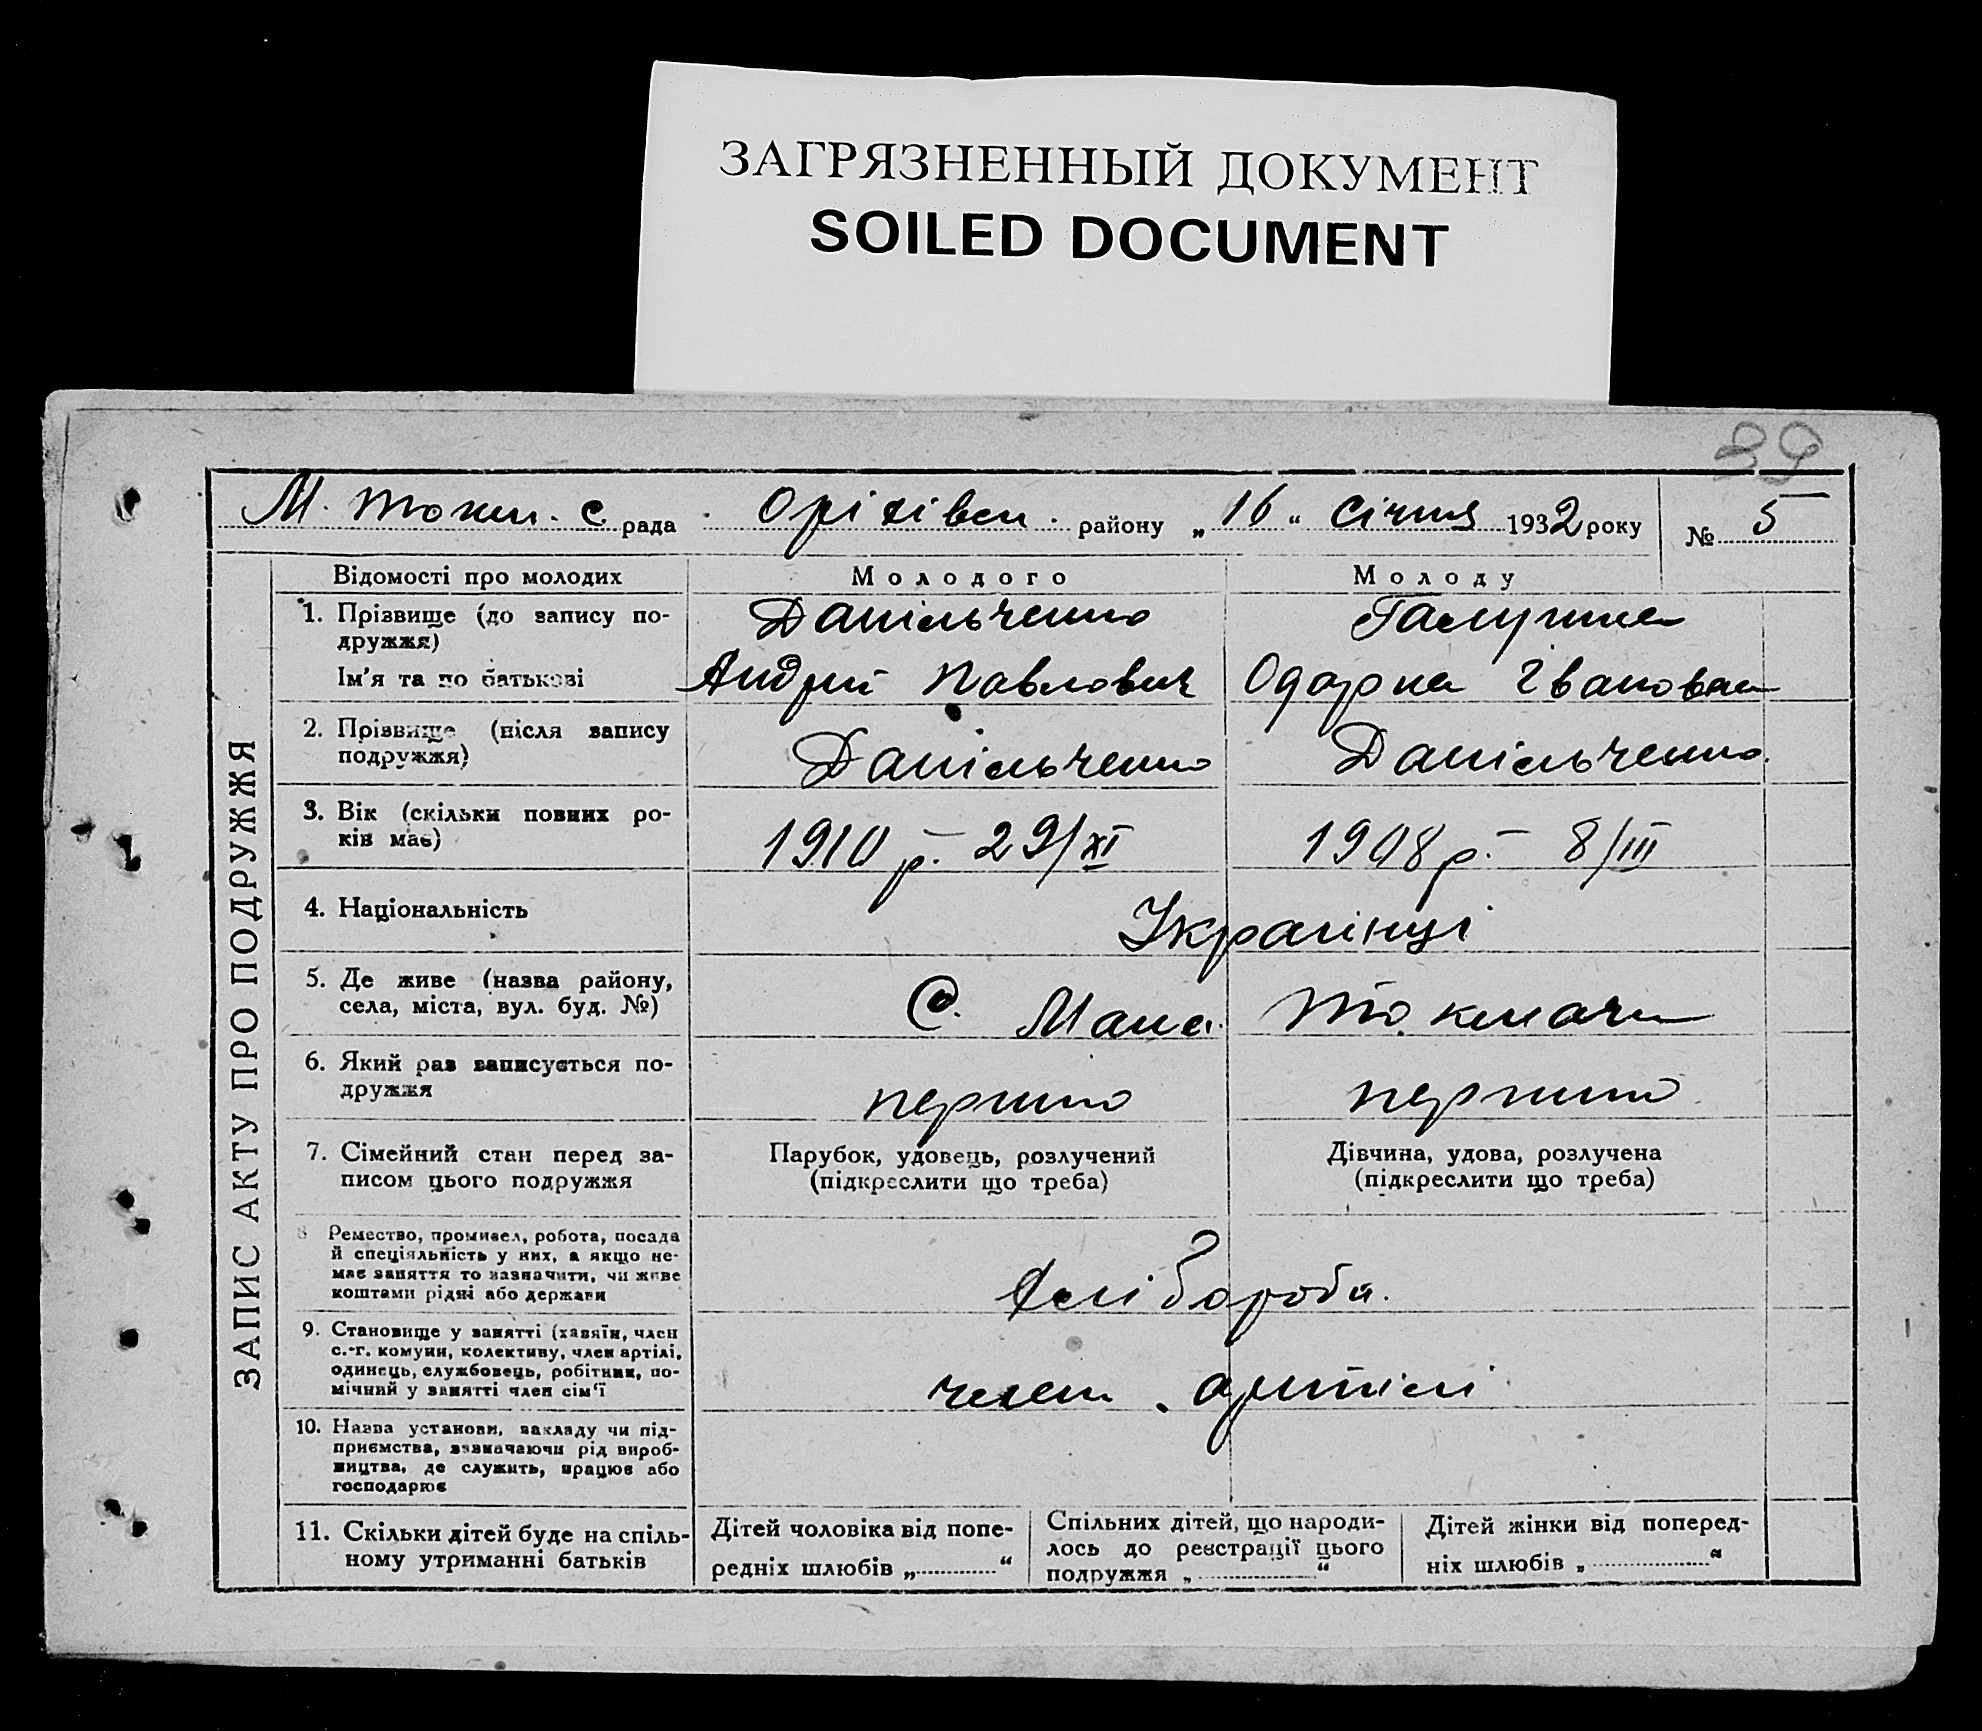 ЗАГРЯЗНЕННЫЙ ДОКУМЕНТ
SOILED DOCUMENT
39
М. Токм. с. рада Оріхівськ. району „16“ Січня 1932 року № 5
ЗАПИС АКТУ ПРО ПОДРУЖЖЯ
Відомості про молодих Молодого Молоду
1. Прізвище (до запису по- Данільченко Галушка
дружжя)
Ім'я та по батькові Андрій Павлович Одарка Івановна
2. Прізвище (після запису Данільченко Данільченко
подружжя)
3. Вік (скільки повних ро- 1910 р. 29/XI 1908 р. 8/III
ків має)
4. Національність Українці
5. Де живе (назва району, С. Мала Токмачк
села, міста, вул. буд. №)
6. Який раз записується по- перший перший
дружжя
7. Сімейний стан перед за- Парубок, удовець, розлучений Дівчина, удова, розлучена
писом цього подружжя (підкреслити що треба) (підкреслити що треба)
8 Ремество, промисел, робота, посада
й спеціяльність у них, а якщо не-
має заняття то зазначити, чи живе
коштами рідні або держави Хлібороби.
9. Становище у занятті (хазяїн, член
с.-г. комуни, колективу, член артілі,
одинець, службовець, робітник, по- член артілі
мічний у занятті член сім'ї
10. Назва установи, закладу чи під-
приємства, зазначаючи рід вироб-
ництва, де служить, працює або
господарює
11. Скільки дітей буде на спіль- Дітей чоловіка від попе- Спільних дітей, що народи- Дітей жінки від поперед-
ному утриманні батьків редніх шлюбів „............“ лось до реєстрації цього ніх шлюбів „............“
подружжя „............“